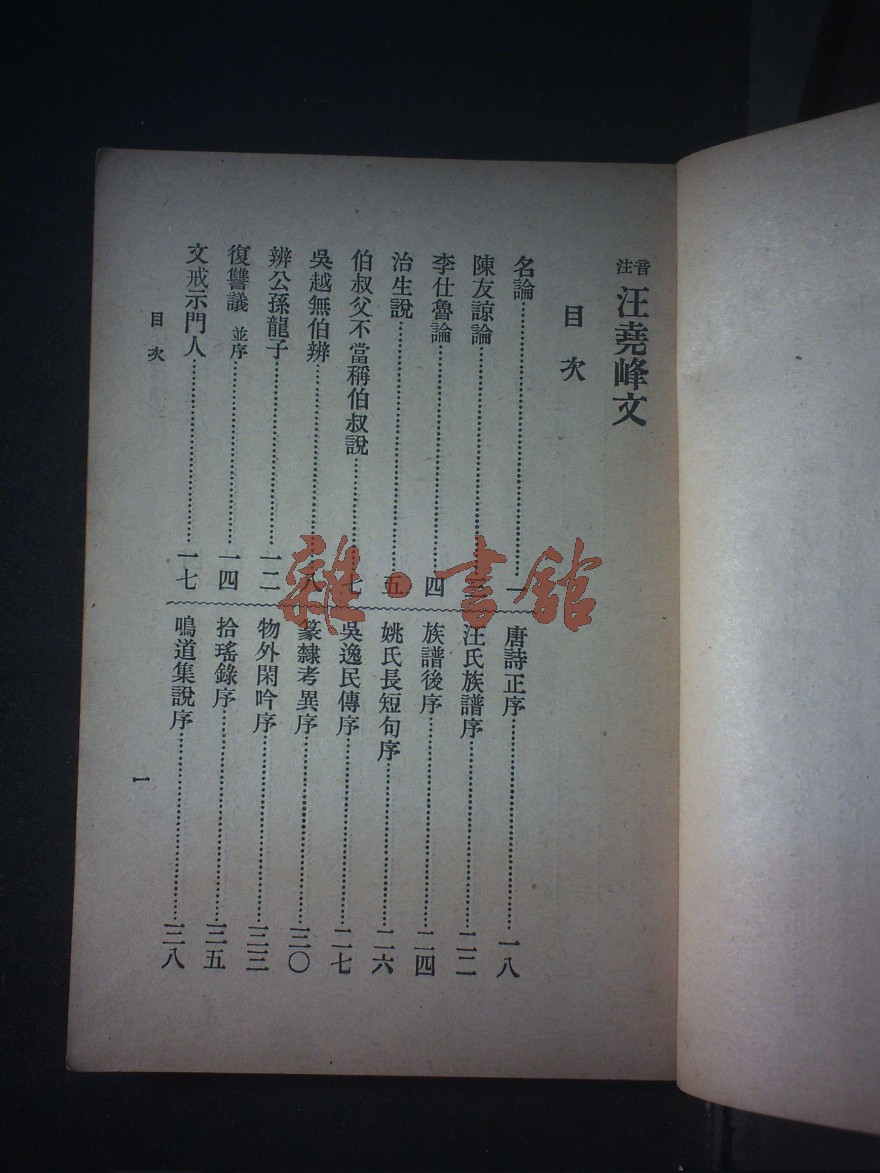 音注 汪堯峰文
目次
名論……一
陳友諒論……三
李仕魯論……四
治生說……五
伯叔父不當稱伯叔說……七
吳越無伯辨……八
辨公孫龍子……一二
復讐議 並序……一四
文戒示門人……一七
唐詩正序……一八
汪氏族譜序……二二
族譜後序……二四
姚氏長短句序……二六
吳逸民傳序……二七
篆隸考異序……三〇
物外閑吟序……三三
拾瑤錄序……三五
鳴道集說序……三八
目次
一
雜·書館